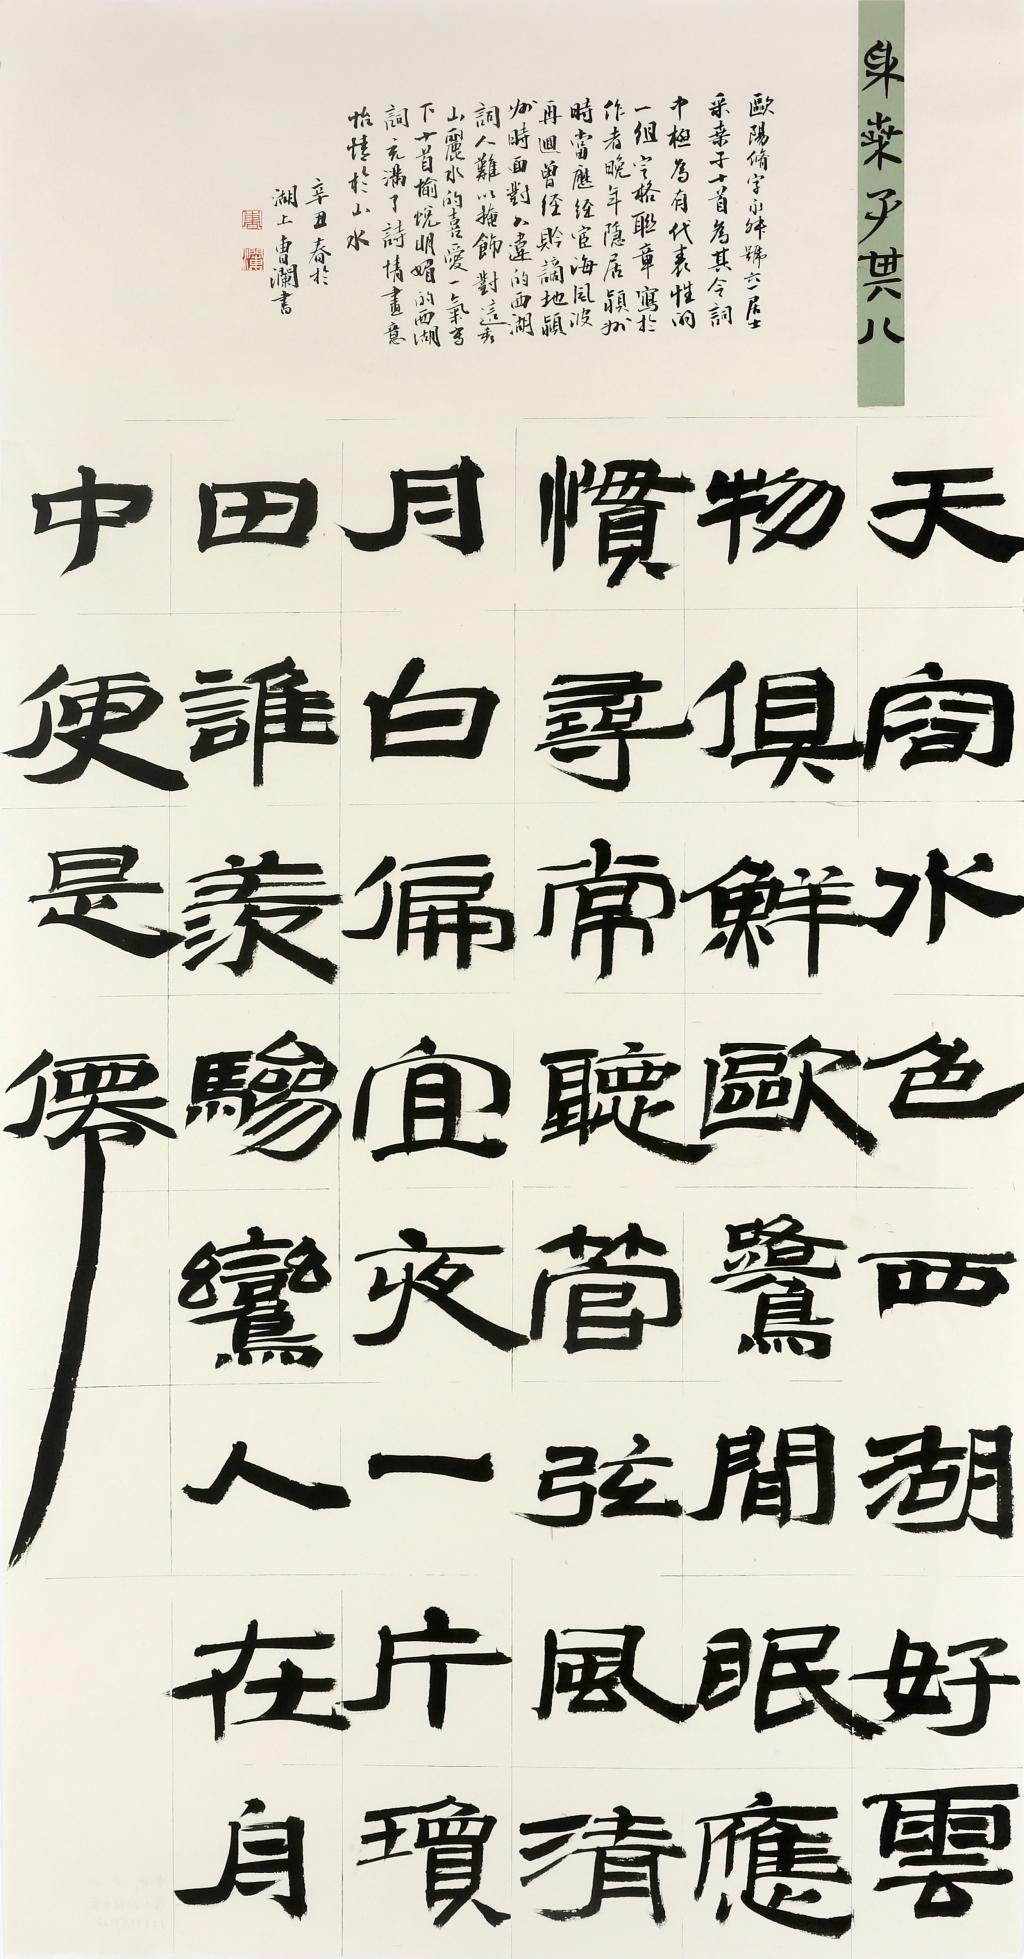 采桑子其八
歐陽脩字永叔號六一居士
采桑子十首為其令詞
中極為有代表性的
一組定格聯章寫於
作者晚年隱居潁州
時當歷經宦海風波
再迴曾經貶謫地潁
州時面對久違的西湖
詞人難以掩飾對這秀
山麗水的喜愛一氣寫
下十首愉悅明媚的西湖
詞充滿了詩情畫意
怡情於山水
辛丑春於
湖上曹瀾書
天容水色西湖好雲
物俱鮮歐鷺間眠應
慣尋常聽管弦風清
月白偏宜夜一片瓊
田誰羨驂鸞人在舟
中便是僊